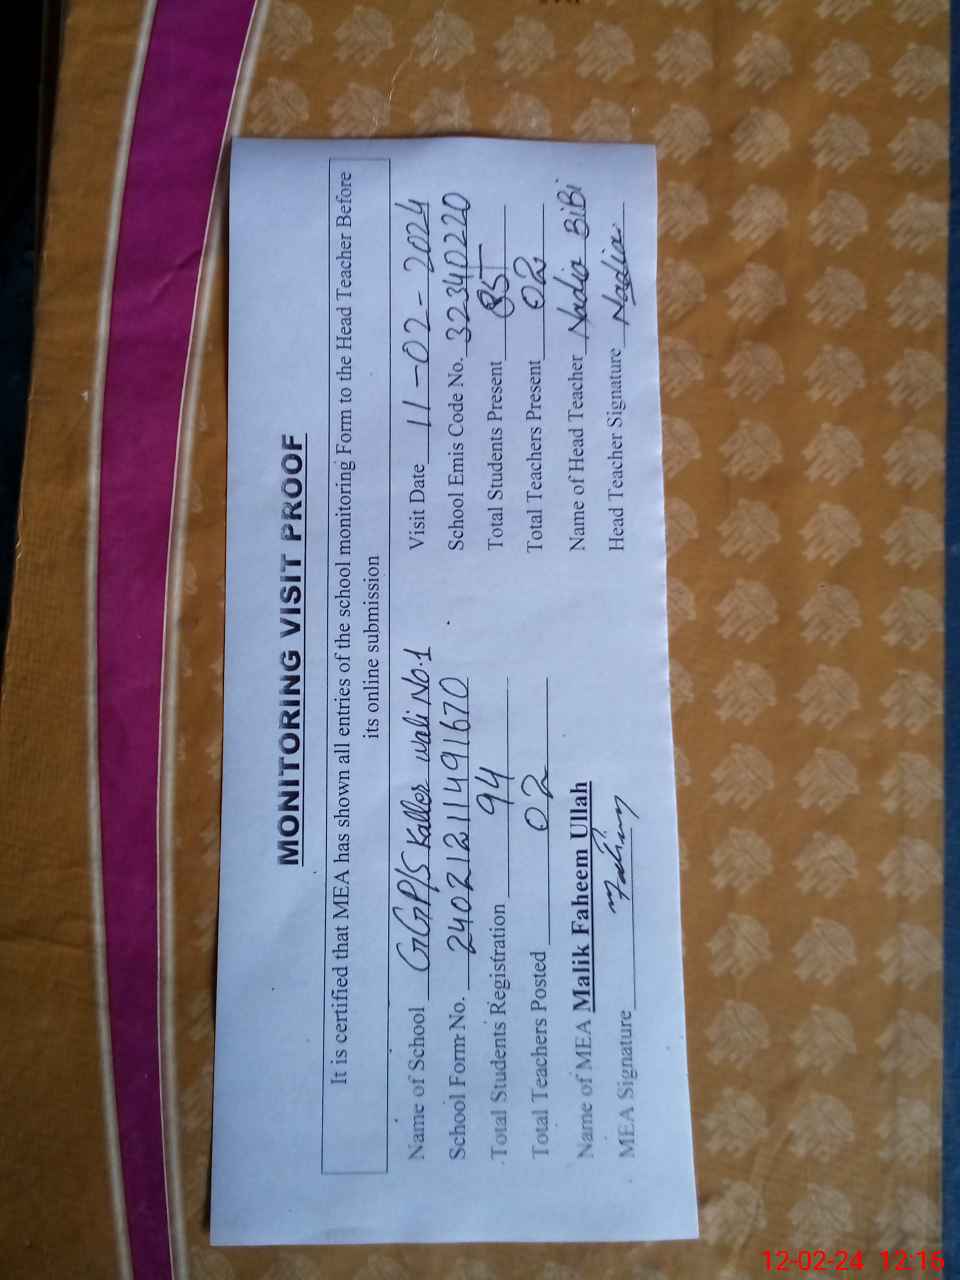 MONITORING VISIT PROOF
It is certified that MEA has shown all entries of the school monitoring Form to the Head Teacher Before
its online submission
Name of School GGP/S Kaller wali No.1 Visit Date 11-02-2024
School Form No. 24021211491670 School Emis Code No. 32340220
Total Students Registration 94 Total Students Present 85
Total Teachers Posted 02 Total Teachers Present 02
Name of MEA Malik Faheem Ullah Name of Head Teacher Nadia BiBi
MEA Signature Fahim Head Teacher Signature Nadia
12-02-24 12:16